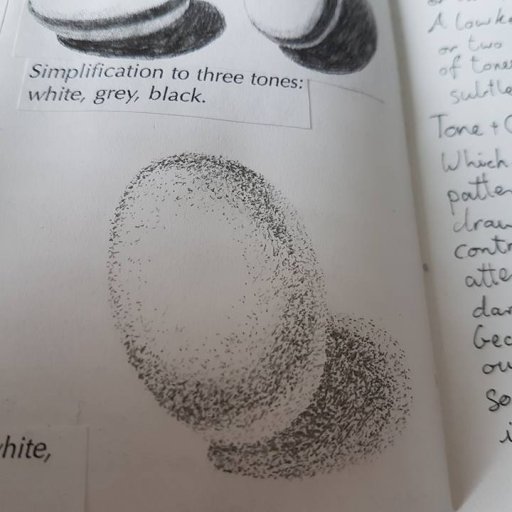 Simplification to three tones:
white, grey, black.
white,
A lowke
or two
of tones
subtle
Tone +
Which
patte
draw
contr
atte
dar
bec
ou
so
i